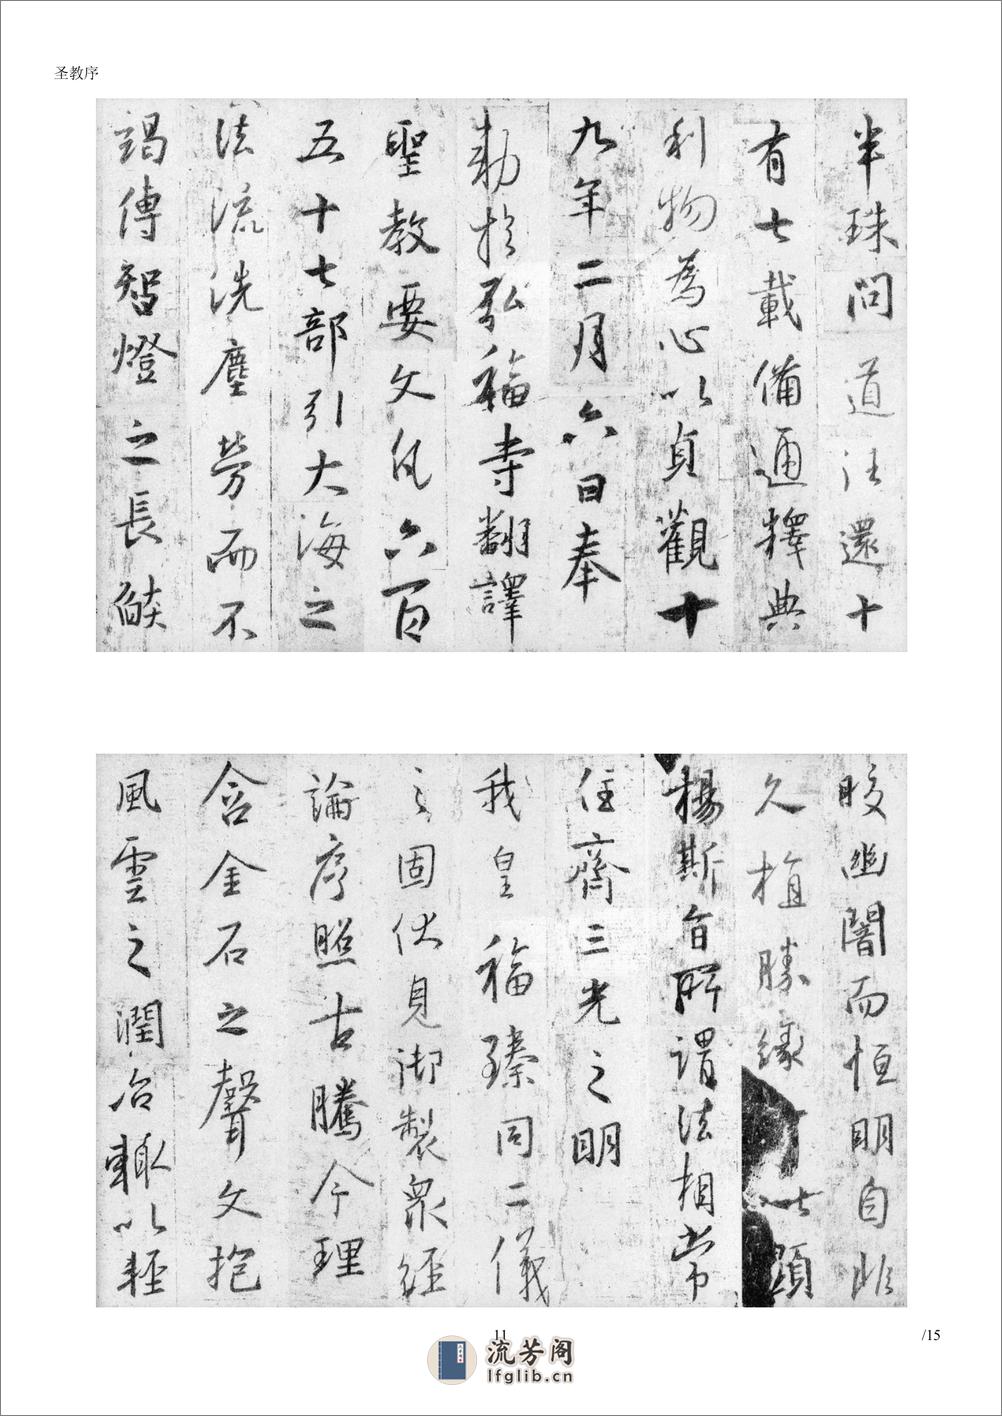 圣教序
半珠問道往還十
有七載備通釋典
利物為心以貞觀十
九年二月六日奉
勅於弘福寺翻譯
聖教要文凡六百
五十七部引大海之
法流洗塵勞而不
竭傳智燈之長焰
皎幽闇而恒明自非
久植勝緣何以顯
揚斯旨所謂法相常
住齊三光之明
我皇福臻同二儀
之固伏見御製衆經
論序照古騰今理
含金石之聲文抱
風雲之潤治輒以輕
11
/15
流芳阁
lfglib.cn